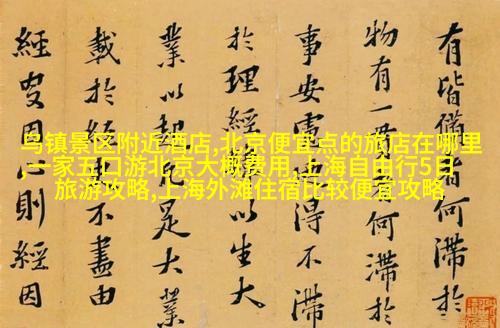 乌镇景区附近酒店,北京便宜点的旅店在哪里
,一家五口游北京大概费用,上海自由行5日
旅游攻略,上海外滩住宿比较便宜攻略
有皆備何滯於
物有一何滯於
事安得不滯
於理經以生大
業以起足大業
載於經不盡由
經因心則經因